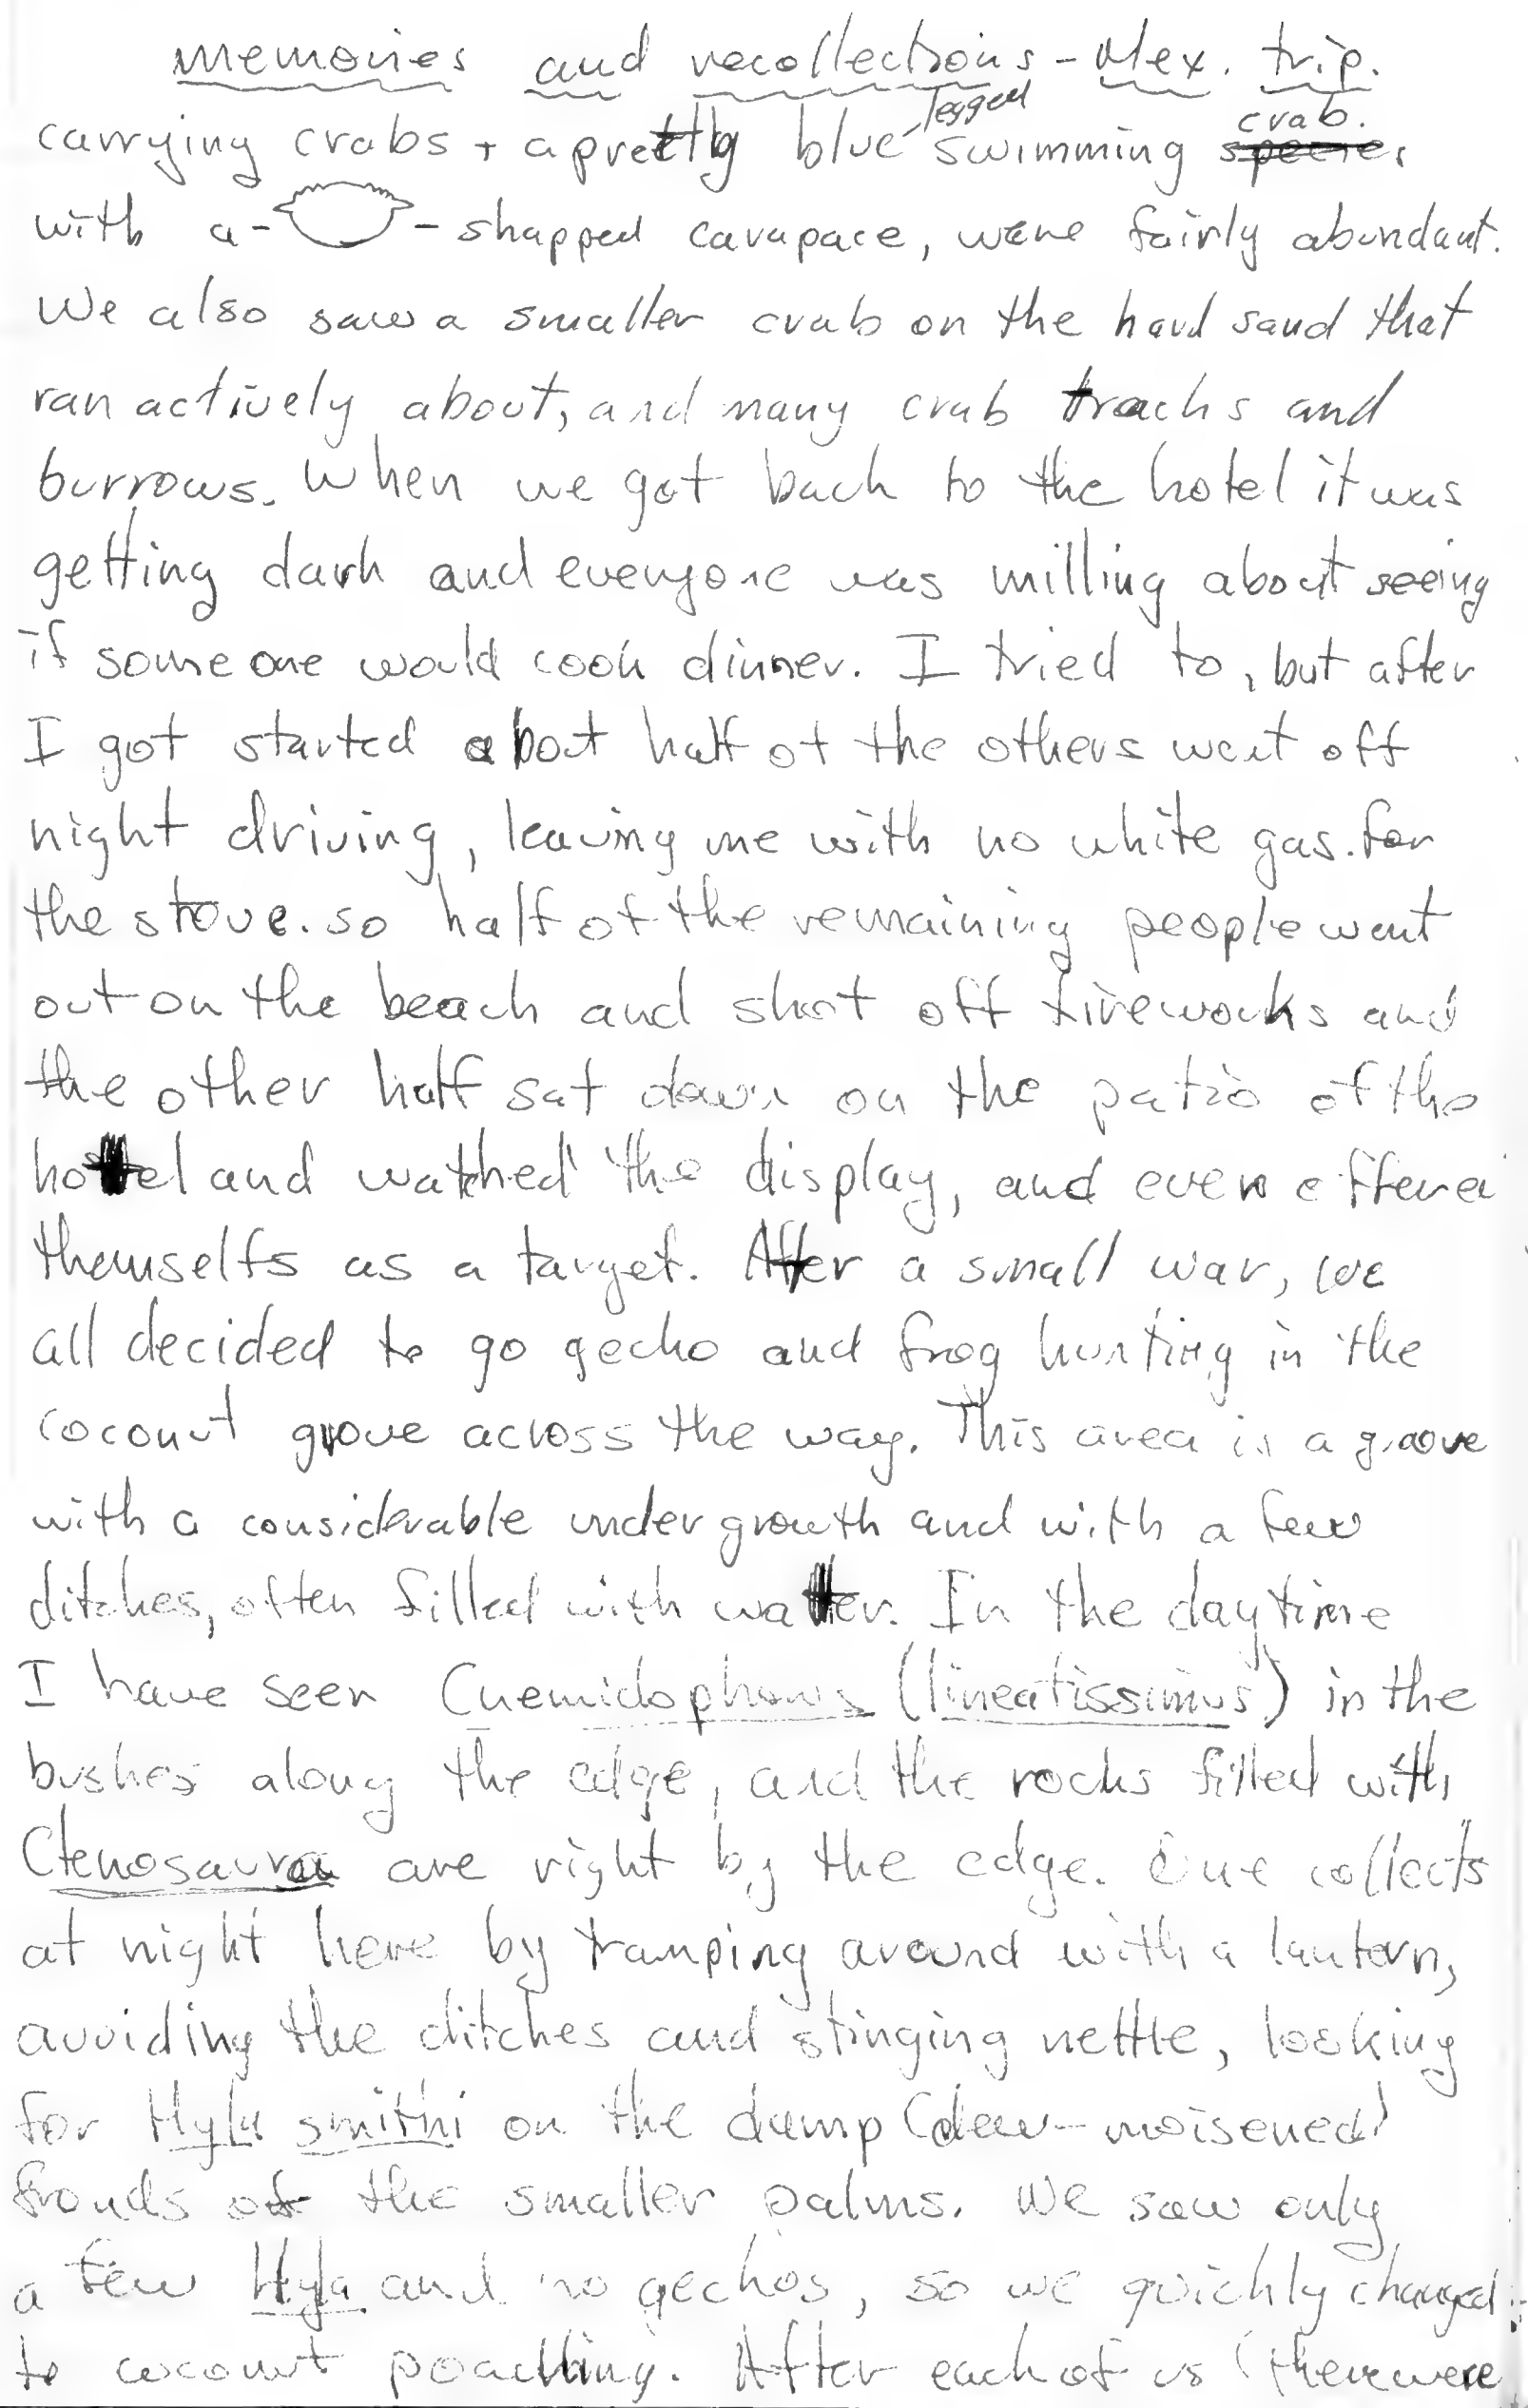 memories and recollections - Mex. trip.
carrying crabs + a pretty blue-legged swimming crab.
with a - - shapped carapace, were fairly abundant.
We also saw a smaller crab on the hard sand that
ran actively about, and many crab tracks and
burrows. When we got back to the hotel it was
getting dark and everyone was milling about seeing
if someone would cook dinner. I tried to, but after
I got started about half of the others went off
night driving, leaving me with no white gas. for
the stove. so half of the remaining people went
out on the beach and shot off fireworks and
the other half sat down on the patio of the
hotel and watched the display, and even offered
themselfs as a target. After a small war, we
all decided to go gecko and frog hunting in the
coconut grove across the way. This area is a groove
with a considerable undergrowth and with a few
ditches, often filled with water. In the daytime
I have seen Cnemidophorus (lineatissimus) in the
bushes along the edge, and the rocks filled with
Ctenosaura are right by the edge. One collects
at night here by tramping around with a lantern,
avoiding the ditches and stinging nettle, looking
for Hyla smithi on the damp (dew-moisened)
fronds of the smaller palms. We saw only
a few Hyla and no geckos, so we quickly changed
to coconut poaching. After each of us (there were